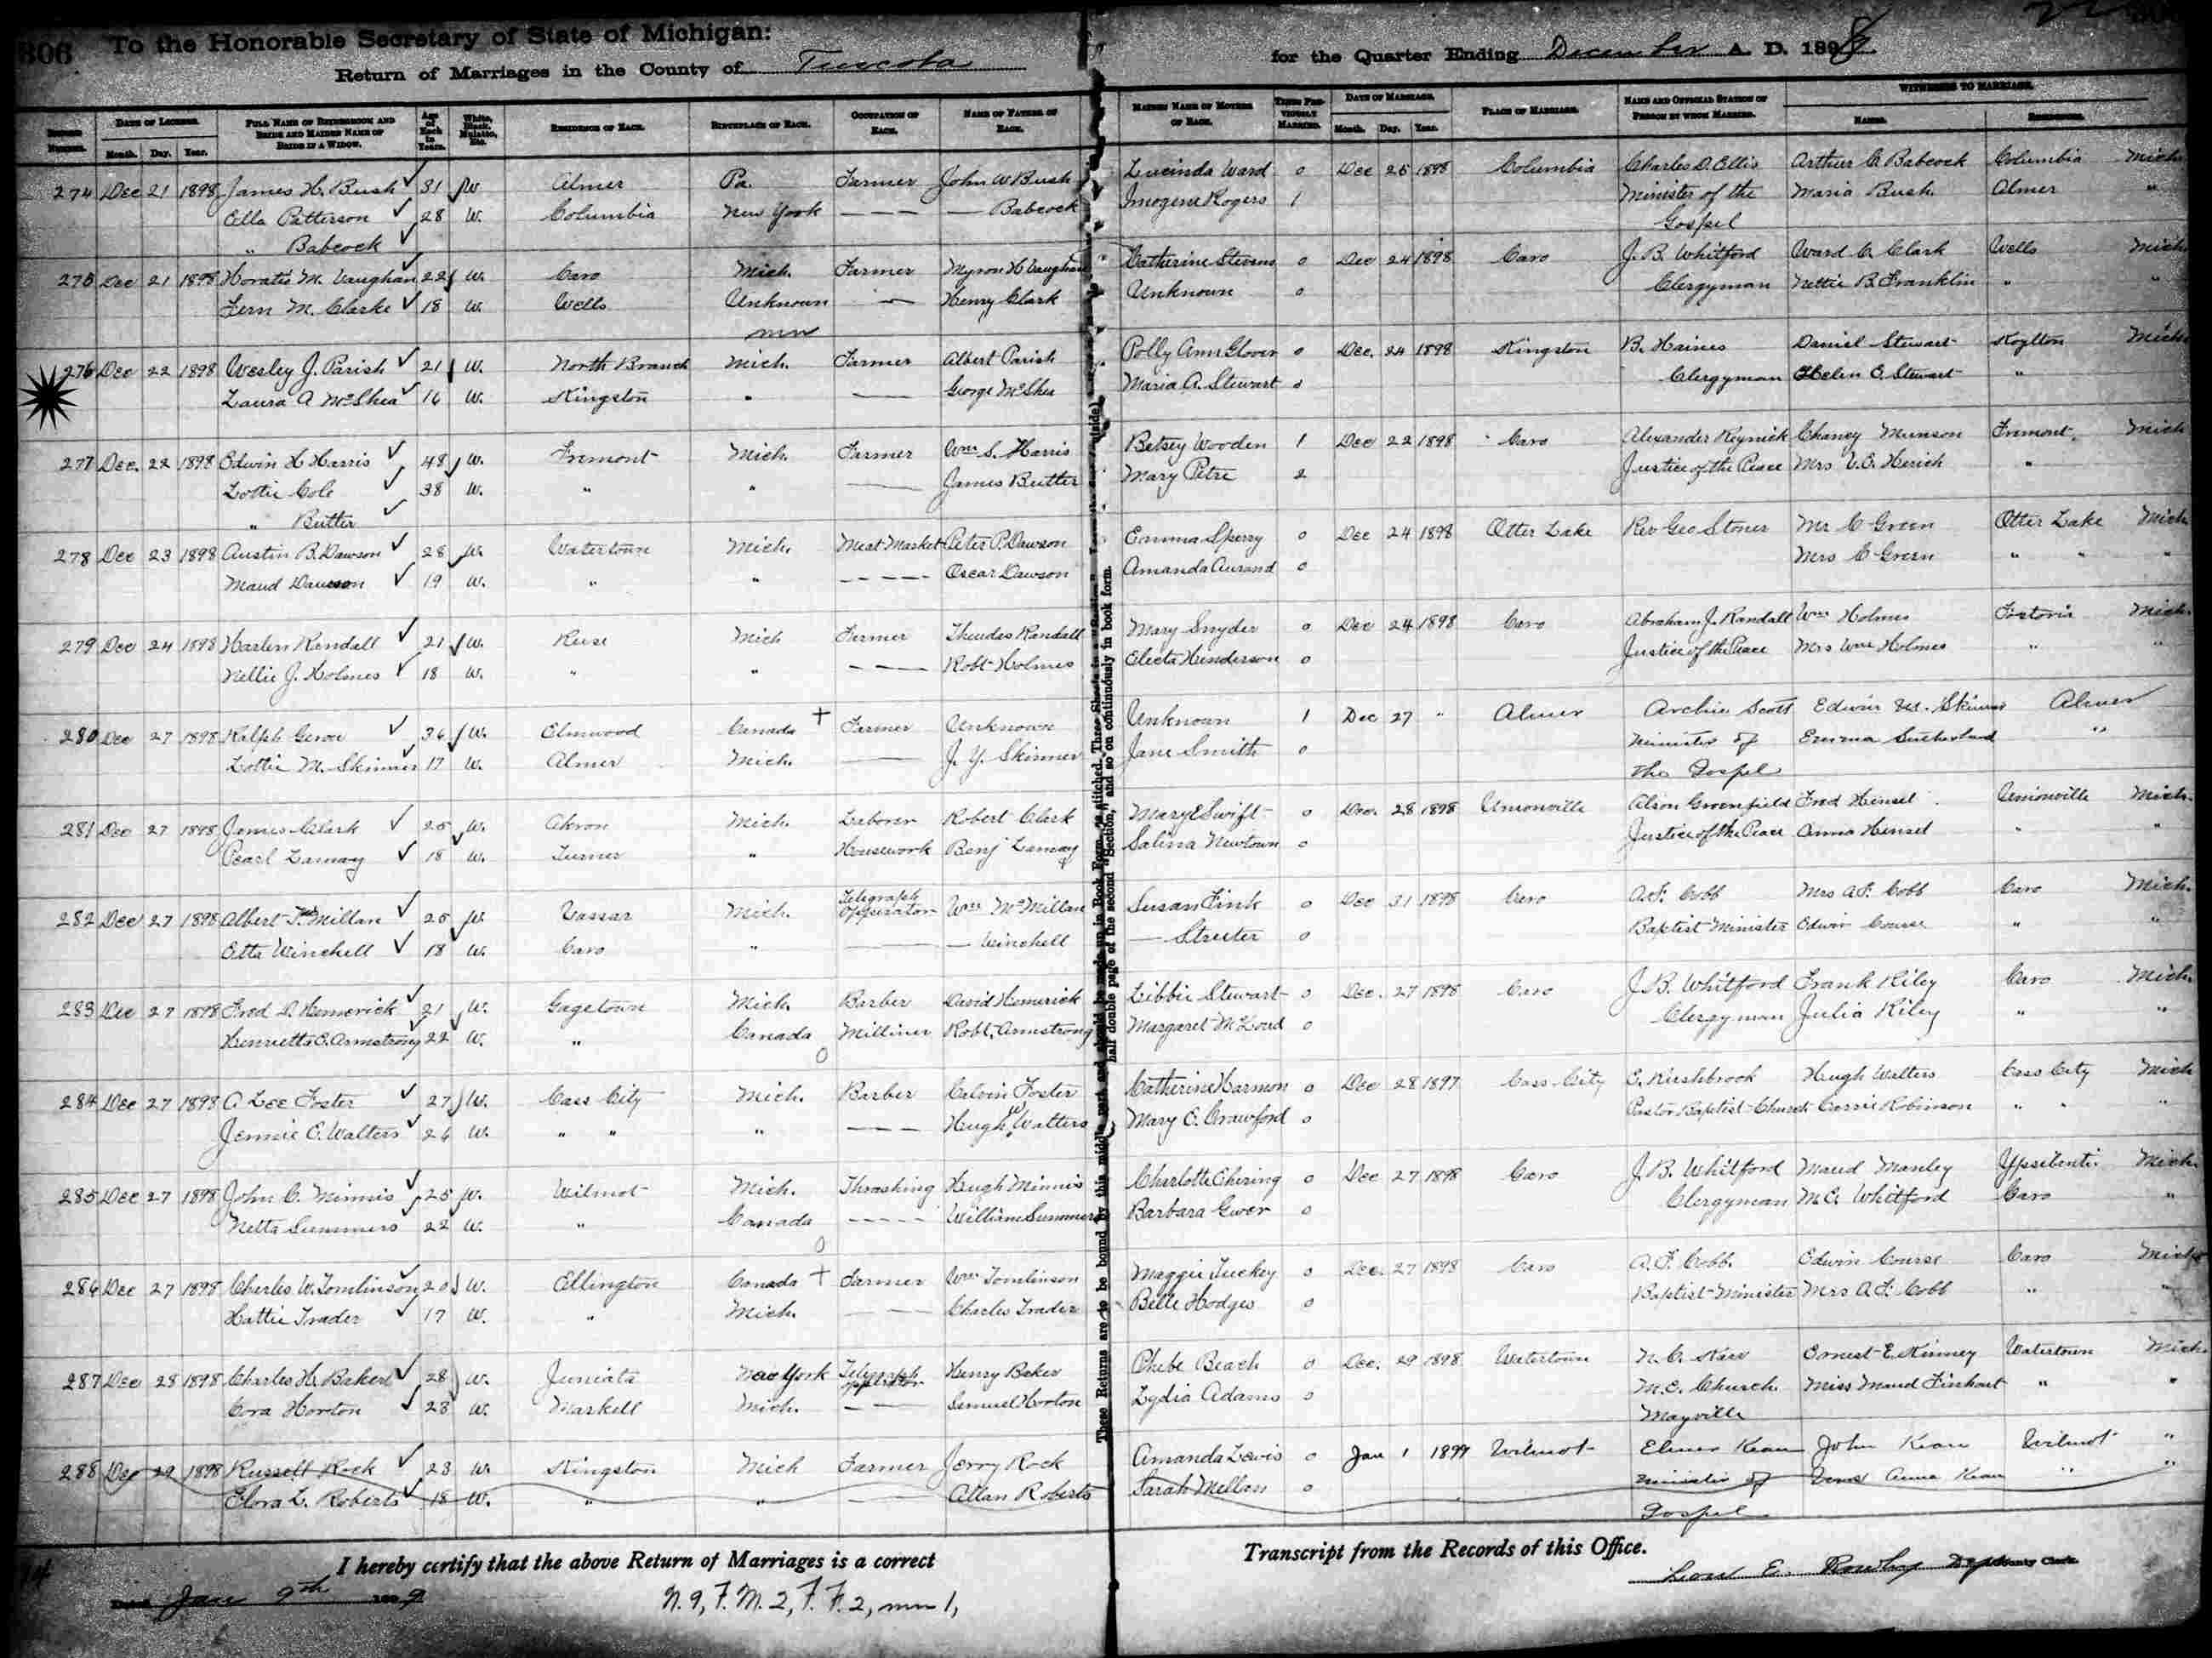 306 To the Honorable Secretary of State of Michigan:
Return of Marriages in the County of Tuscola for the Quarter Ending December A. D. 1898
DATE OF LICENSE. FULL NAME OF BRIDEGROOM AND BRIDE AND MAIDEN NAME OF BRIDE IF A WIDOW. Age of Each in Years. White, Black, Mulatto, Etc. RESIDENCE OF EACH. BIRTHPLACE OF EACH. OCCUPATION OF EACH. NAME OF FATHER OF EACH. MAIDEN NAME OF MOTHER OF EACH. TIMES PREVIOUSLY MARRIED. DATE OF MARRIAGE. PLACE OF MARRIAGE. NAME AND OFFICIAL STATION OF PERSON BY WHOM MARRIED. WITNESSES TO MARRIAGE.
Month. Day. Year. Month. Day. Year. NAMES. RESIDENCE.
274 Dec 21 1898 James H. Bush 31 W. Almer Pa. Farmer John W Bush Lucinda Ward 0 Dec 25 1898 Columbia Charles D. Ellis Arthur C Babcock Columbia Mich
Ella Patterson 28 W. Columbia New York — — — — Babcock Imogene Rogers 1 Minister of the Maria Bush Almer "
" Babcock Gospel
275 Dec 21 1898 Horatio M. Vaughan 22 W. Caro Mich. Farmer Myron H Vaughan Catherine Stevens 0 Dec 24 1898 Caro J. B. Whitford Ward C. Clark Wells Mich
Fern M. Clarke 18 W. Wells Unknown — Henry Clark Unknown 0 Clergyman Nettie B. Franklin " "
mw
276 Dec 22 1898 Wesley J. Parish 21 W. North Branch Mich. Farmer Albert Parish Polly Ann Glover 0 Dec. 24 1898 Kingston B. Haines Daniel Stewart Koylton Mich
Laura A McShea 16 W. Kingston " — George McShea Maria A. Stewart 0 Clergyman Helen E. Stewart "
277 Dec. 22 1898 Edwin H Harris 48 W. Fremont Mich. Farmer Wm S. Harris Betsey Wooden 1 Dec 22 1898 Caro Alexander Reynick Chaney Munson Fremont Mich
Lottie Cole 38 W. " " — James Butter Mary Petre 2 Justice of the Peace Mrs V. E. Herich "
" Butter
278 Dec 23 1898 Austin B. Dawson 28 W. Watertown Mich. Meat Market Peter P. Dawson Emma Sperry 0 Dec 24 1898 Otter Lake Rev Geo Stoner Mr C Green Otter Lake Mich
Maud Dawson 19 W. " " — — — — Oscar Dawson Amanda Aurand 0 Mrs C Green " " "
279 Dec 24 1898 Harlen Randall 21 W. Reese Mich Farmer Randall Mary Snyder 0 Dec 24 1898 Caro Abraham J. Randall Wm Holmes Fostoria Mich.
Nellie J. Holmes 18 W. " " — — — Robt Holmes Electa Henderson 0 Justice of the Peace Mrs Wm Holmes " "
280 Dec 27 1898 Ralph 36 W. Elmwood Canada + Farmer Unknown Unknown 1 Dec 27 " Almer Archie Scott Edwin M. Skinner Almer
Lottie M. Skinner 17 W. Almer Mich. — J. Y. Skinner Jane Smith 0 Minister of Emma Sutherland "
the Gospel
281 Dec 27 1898 James Clark 25 W. Akron Mich. Laborer Robert Clark Mary E Swift 0 Dec. 28 1898 Unionville Alson Greenfield Fred Hensel Unionville Mich.
Pearl Lamay 18 W. Turner " Housework Benj Lamay Salina Newtown 0 Justice of the Peace Anna Hensel " "
282 Dec 27 1898 Albert McMillan 25 W. Vassar Mich. Telegraph Opperator Wm McMillan Susan Fink 0 Dec 31 1898 Caro A. F. Cobb Mrs A. F. Cobb Caro Mich.
Etta Winchell 18 W. Caro " — — Winchell — Streeter 0 Baptist Minister Edwin Course " "
283 Dec 27 1898 Fred D. Hemerick 21 W. Gagetown Mich. Barber David Hemerick Libbie Stewart 0 Dec. 27 1898 Caro J. B. Whitford Frank Riley Caro Mich.
Henrietta E. Armstrong 22 W. " Canada 0 Milliner Robt. Armstrong Margaret McLoud 0 Clergyman Julia Riley " "
284 Dec 27 1898 A Lee Foster 27 W. Cass City Mich. Barber Calvin Foster Catherine Harmon 0 Dec 28 1897 Cass City Hugh Walters Cass City Mich
Jennie C. Walters 26 W. " " " — — — Hugh Walters Mary E. Crawford 0 Pastor Baptist Church Carrie Robinson " " "
285 Dec 27 1898 John C. Minnis 25 W. Wilmot Mich. Thrashing Hugh Minnis Charlotte 0 Dec 27 1898 Caro J. B. Whitford Maud Manley Ypsilanti Mich.
Netta Summers 22 W. " Canada 0 — — — — William Summers Barbara 0 Clergyman M. E. Whitford Caro "
286 Dec 27 1898 Charles W. Tomlinson 20 W. Ellington Canada + Farmer Wm Tomlinson Maggie Tuckey 0 Dec. 27 1898 Caro A. F. Cobb. Edwin Course Caro Mich
Hattie Trader 17 W. " Mich. — — — Charles Trader Belle Hodges 0 Baptist Minister Mrs A. F. Cobb " "
287 Dec 28 1898 Charles H. Baker 28 W. Juniata New York Telegraph operator Henry Baker Phebe Beach 0 Dec. 29 1898 Watertown N. C. Karr Ernest E. Kinney Watertown Mich.
Cora Horton 23 W. Markell Mich. — — Samuel Horton Lydia Adams 0 M. E. Church Miss Maud " "
Mayville
288 Dec 29 1898 Russell Rock 23 W. Kingston Mich Farmer Jerry Rock Amanda Lewis 0 Jan 1 1899 Wilmot Elmer Kean John Kean Wilmot "
Flora L. Roberts 18 W. " " — Allan Roberts Sarah Mellan 0 Minister of Anna Kean " "
Gospel
These Returns are to be bound by this middle mark and should be made up in Book Form
half double page of the second "Section," and so on continuously in book form.
I hereby certify that the above Return of Marriages is a correct Transcript from the Records of this Office.
Dated Jan 9th 1899
N. 9, F. M. 2, F. F. 2, mw 1,